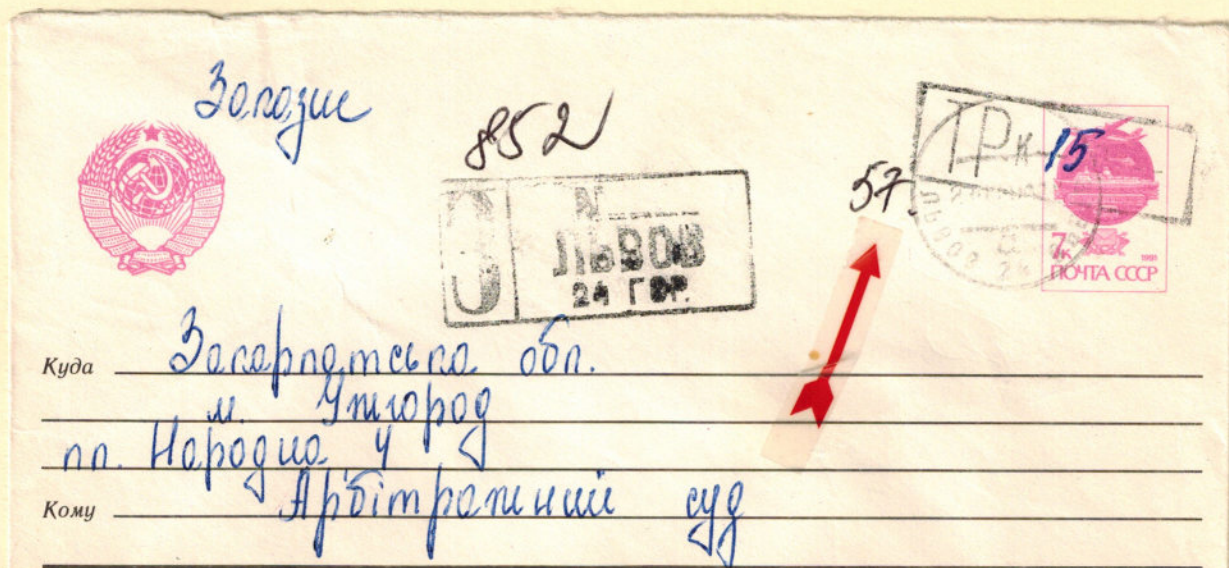 Заказне
852
З
N
ЛЬВОВ
24 ГОР.
57.
ТР к 15
7к
1991
ПОЧТА СССР
Куда Закарпатська обл.
м. Ужгород
пл. Народна 4
Кому Арбітражний суд